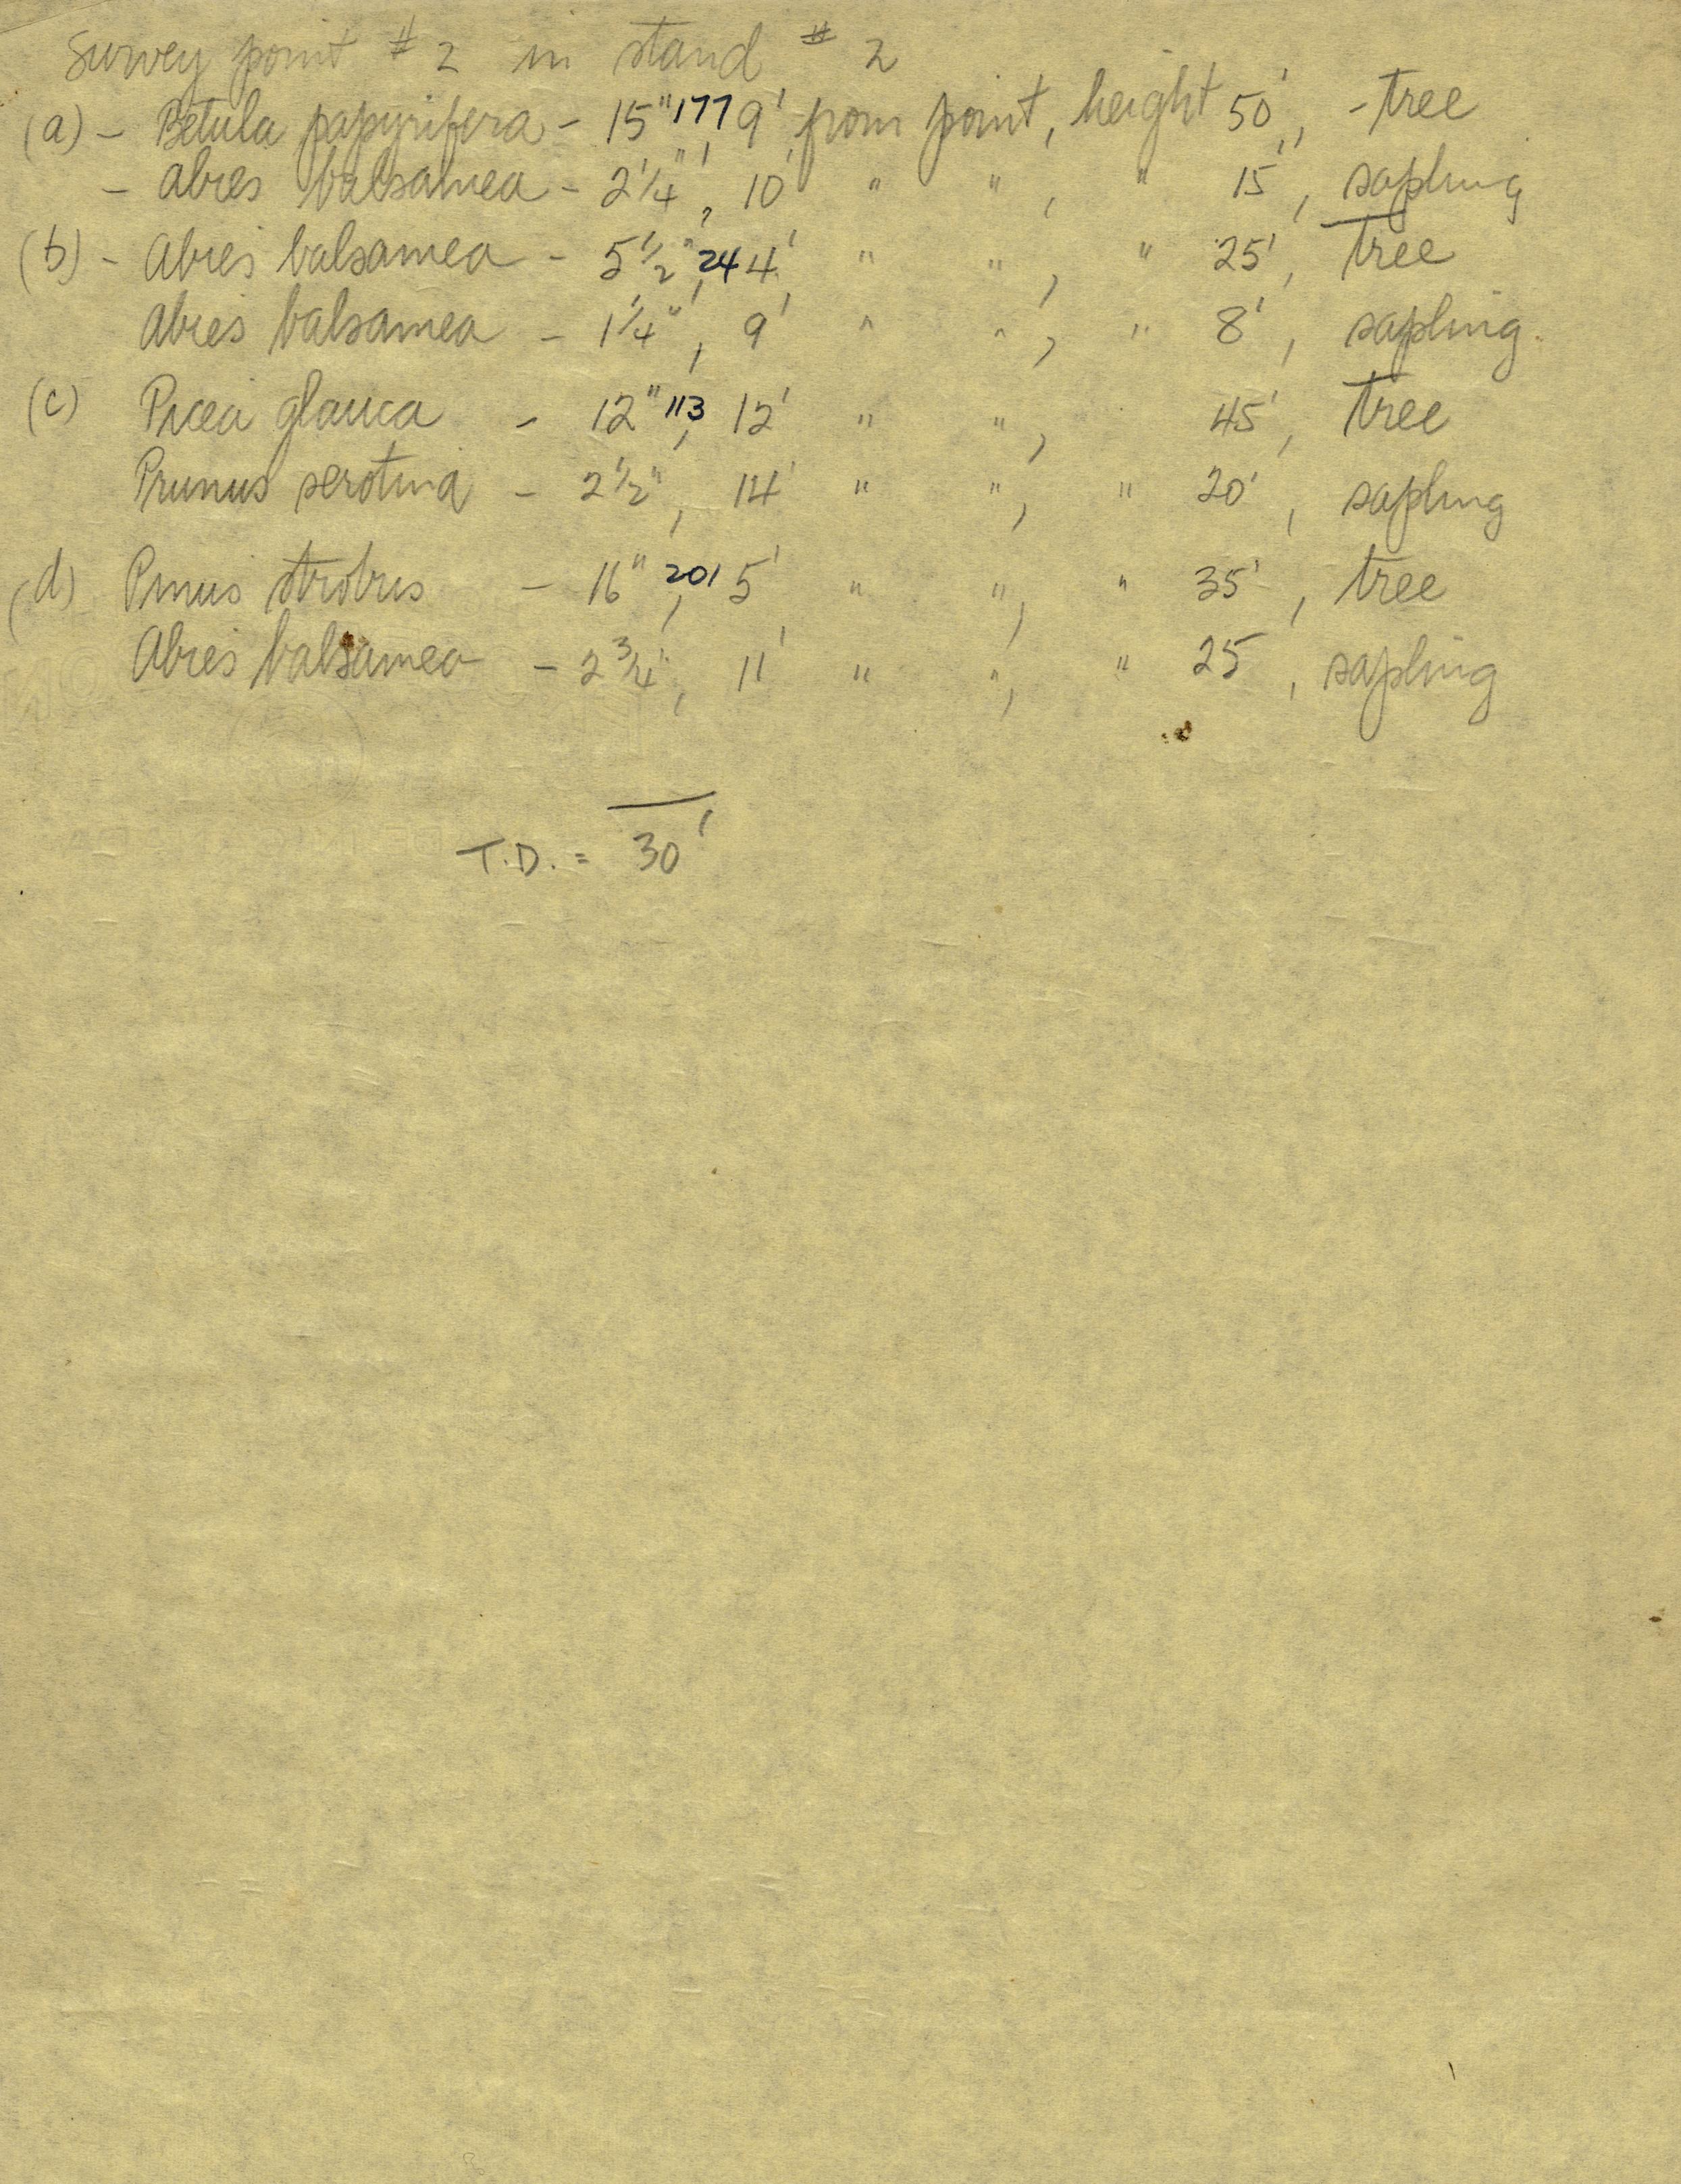 Survey point # 2 in stand # 2
(a) - Betula papyrifera - 15" 177, 9' from point, height 50', - tree
- Abies balsamea - 2 1/4", 10' " ", " 15', sapling
(b) - Abies balsamea - 5 1/2", 24 4' " ", " 25', tree
Abies balsamea - 1 1/4", 9' " ", " 8', sapling
(c) Picea glauca - 12" 113, 12' " ", 45', tree
Prunus serotina - 2 1/2", 14' " ", " 20', sapling
(d) Pinus strobus - 16", 201 5' " ", " 35', tree
Abies balsamea - 2 3/4", 11' " ", " 25, sapling
T.D. = 30'